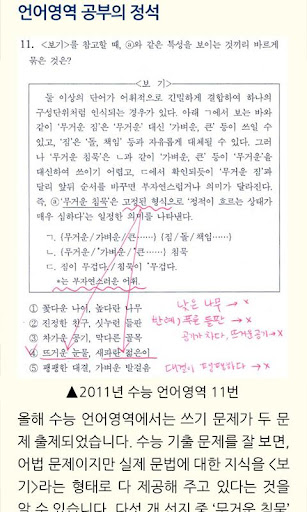 언어영역 공부의 정석
11. <보기>를 참고할 때, ⓐ와 같은 특성을 보이는 것끼리 바르게
묶은 것은?
<보 기>
둘 이상의 단어가 어휘적으로 긴밀하게 결합하여 하나의
구성단위처럼 인식되는 경우가 있다. 아래 ㄱ에서 보는 바와
같이 '무거운 짐'은 '무거운' 대신 '가벼운, 큰' 등이 쓰일 수
있고, '짐'은 '돌, 책임' 등과 자유롭게 대체될 수 있다. 그러
나 '무거운 침묵'은 ㄴ과 같이 '가벼운, 큰' 등이 '무거운'을
대신하여 쓰이기 어렵고, ㄷ에서 확인되듯이 '무거운 짐'과
달리 앞뒤 순서를 바꾸면 부자연스럽거나 의미가 달라진다.
즉, ⓐ'무거운 침묵'은 고정된 형식으로 '정적이 흐르는 상태가
매우 심하다'는 일정한 의미를 나타낸다.
ㄱ. {무거운/가벼운/큰……} {짐/돌/책임……}
ㄴ. {무거운/*가벼운/*큰……} 침묵
ㄷ. 짐이 무겁다./침묵이 *무겁다.
*는 부자연스러운 어휘.
① 꽃다운 나이, 높다란 나무 낮은 나무 → x
② 진정한 친구, 싯누런 들판 푸른 들판 → x
③ 차가운 공기, 막다른 골목 공기가 차다, 뜨거운 공기 → x
④ 뜨거운 눈물, 새파란 젊은이
⑤ 팽팽한 대결, 가벼운 발걸음 대결이 팽팽하다 → x
▲2011년 수능 언어영역 11번
올해 수능 언어영역에서는 쓰기 문제가 두 문
제 출제되었습니다. 수능 기출 문제를 잘 보면,
어법 문제이지만 실제 문법에 대한 지식을 <보
기>라는 형태로 다 제공해 주고 있다는 것을
알 수 있습니다. 다섯 개 선지 중 '무거운 침묵'